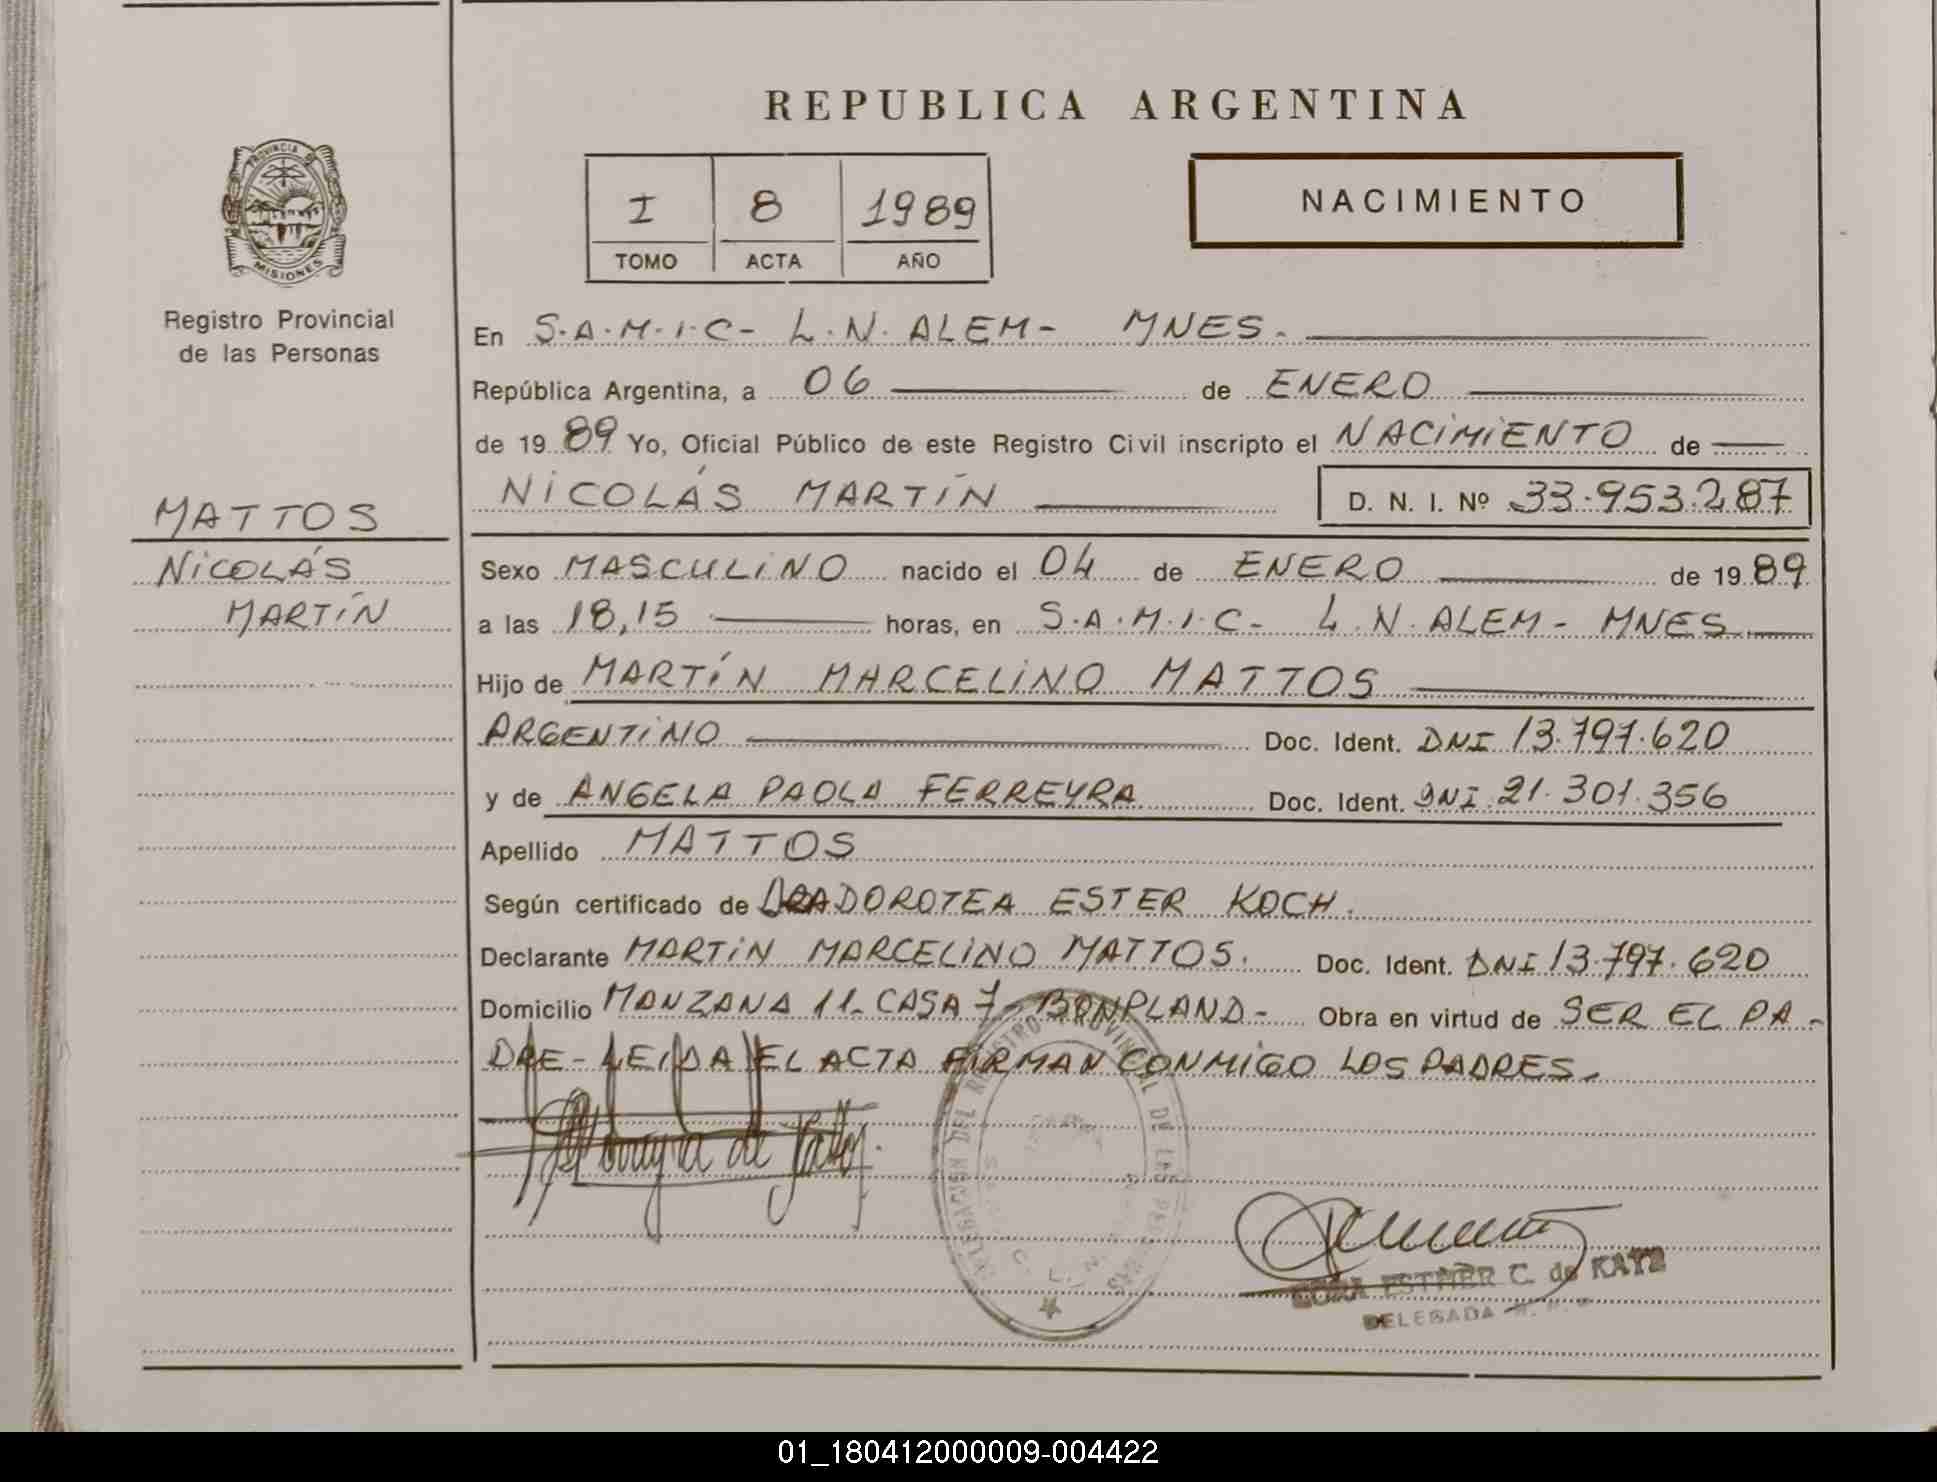 REPUBLICA ARGENTINA
PROVINCIA DE
MISIONES
Registro Provincial
de las Personas
I 8 1989
TOMO ACTA AÑO
NACIMIENTO
En S.A.M.I.C- L.N. ALEM- MNES.
República Argentina, a 06 de ENERO
de 19 89 Yo, Oficial Público de este Registro Civil inscripto el NACIMIENTO de
NICOLÁS MARTÍN D. N. I. Nº 33.953.287
MATTOS
NICOLÁS
MARTÍN
Sexo MASCULINO nacido el 04 de ENERO de 19 89
a las 18,15 horas, en S.A.M.I.C- L.N. ALEM- MNES
Hijo de MARTÍN MARCELINO MATTOS
ARGENTINO Doc. Ident. DNI 13.797.620
y de ANGELA PAOLA FERREYRA Doc. Ident. DNI 21.301.356
Apellido MATTOS
Según certificado de DRA DOROTEA ESTER KOCH.
Declarante MARTIN MARCELINO MATTOS. Doc. Ident. DNI 13.797.620
Domicilio MANZANA 11- CASA 7- BONPLAND- Obra en virtud de SER EL PA-
DRE- LEIDA EL ACTA FIRMAN CONMIGO LOS PADRES.
DELEGACION DEL REGISTRO PROVINCIAL DE LAS PERSONAS
ESTHER C. de KATZ
DELEGADA
01_180412000009-004422